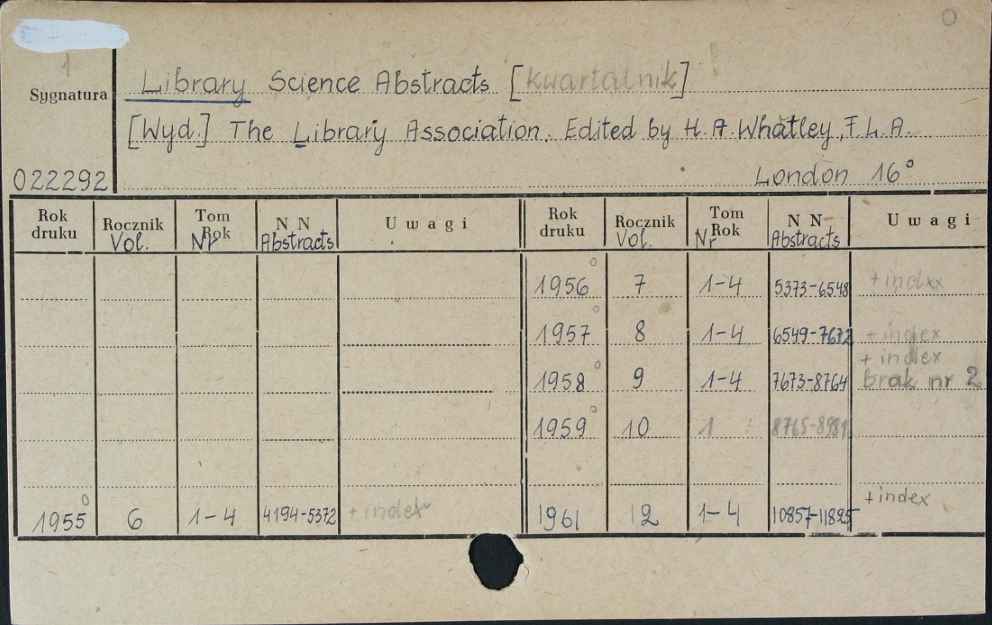 1
Library Science Abstracts [kwartalnik]
Sygnatura
[Wyd.] The Library Association. Edited by H.A. Whatley, F.L.A.
022292
London 16°
Rok druku Rocznik Vol. Tom Rok Nr N N Abstracts Uwagi Rok druku Rocznik Vol. Tom Rok Nr N N Abstracts Uwagi
1956 7 1-4 5373-6548 + index
1957 8 1-4 6549-7672 + index
+ index
1958 9 1-4 7673-8764 brak nr 2
1959 10 1
+ index
1955 6 1-4 4194-5372 + index 1961 12 1-4 10857-11825